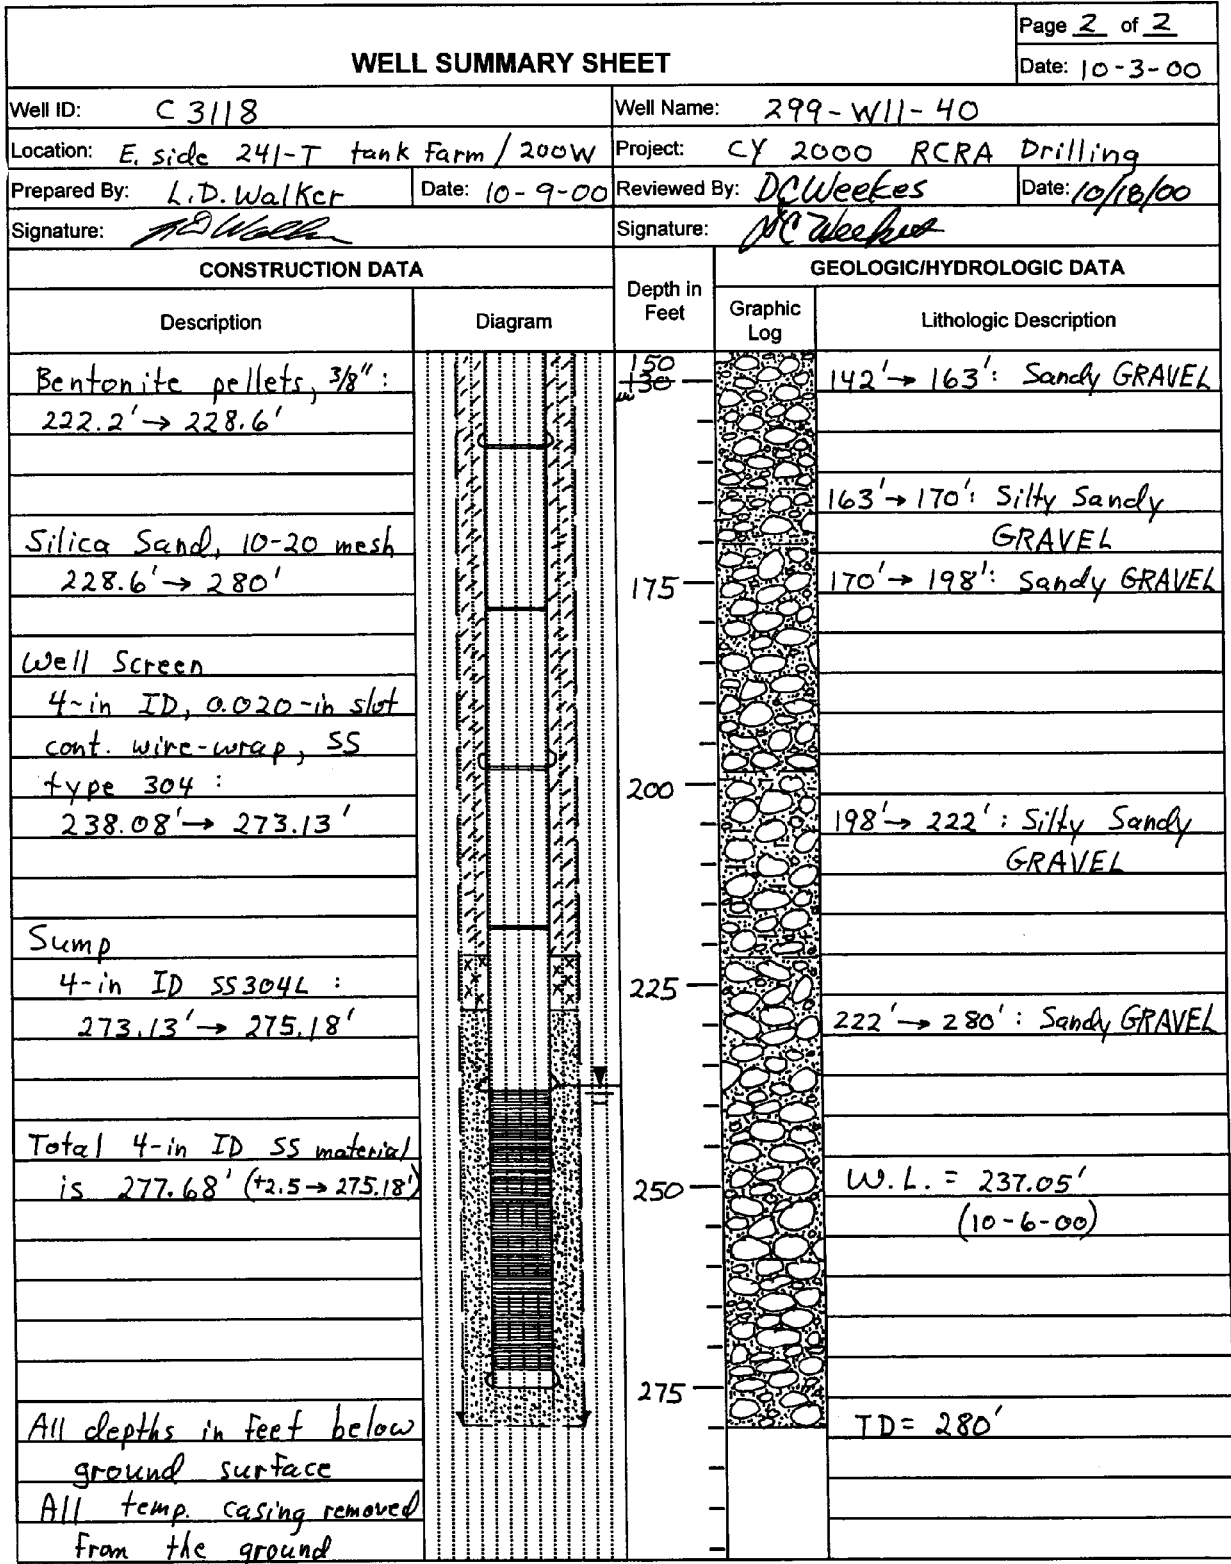 Page 2 of 2
WELL SUMMARY SHEET
Date: 10-3-00
Well ID: C3118
Well Name: 299-W11-40
Location: E. side 241-T tank farm / 200W
Project: CY 2000 RCRA Drilling
Prepared By: L.D. Walker
Date: 10-9-00
Reviewed By: DC Weekes
Date: 10/18/00
Signature: LD Walker
Signature: DC Weekes
CONSTRUCTION DATA
Depth in
Feet
GEOLOGIC/HYDROLOGIC DATA
Description
Diagram
Graphic
Log
Lithologic Description
Bentonite pellets, 3/8":
222.2' → 228.6'
Silica Sand, 10-20 mesh
228.6' → 280'
Well Screen
4-in ID, 0.020-in slot
cont. wire-wrap, SS
type 304 :
238.08' → 273.13'
Sump
4-in ID SS304L :
273.13' → 275.18'
Total 4-in ID SS material
is 277.68' (+2.5 → 275.18')
All depths in feet below
ground surface
All temp. casing removed
from the ground
150
130
175
200
225
250
275
142' → 163': Sandy GRAVEL
163' → 170': Silty Sandy
GRAVEL
170' → 198': Sandy GRAVEL
198' → 222' : Silty Sandy
GRAVEL
222' → 280' : Sandy GRAVEL
W.L. = 237.05'
(10-6-00)
TD = 280'